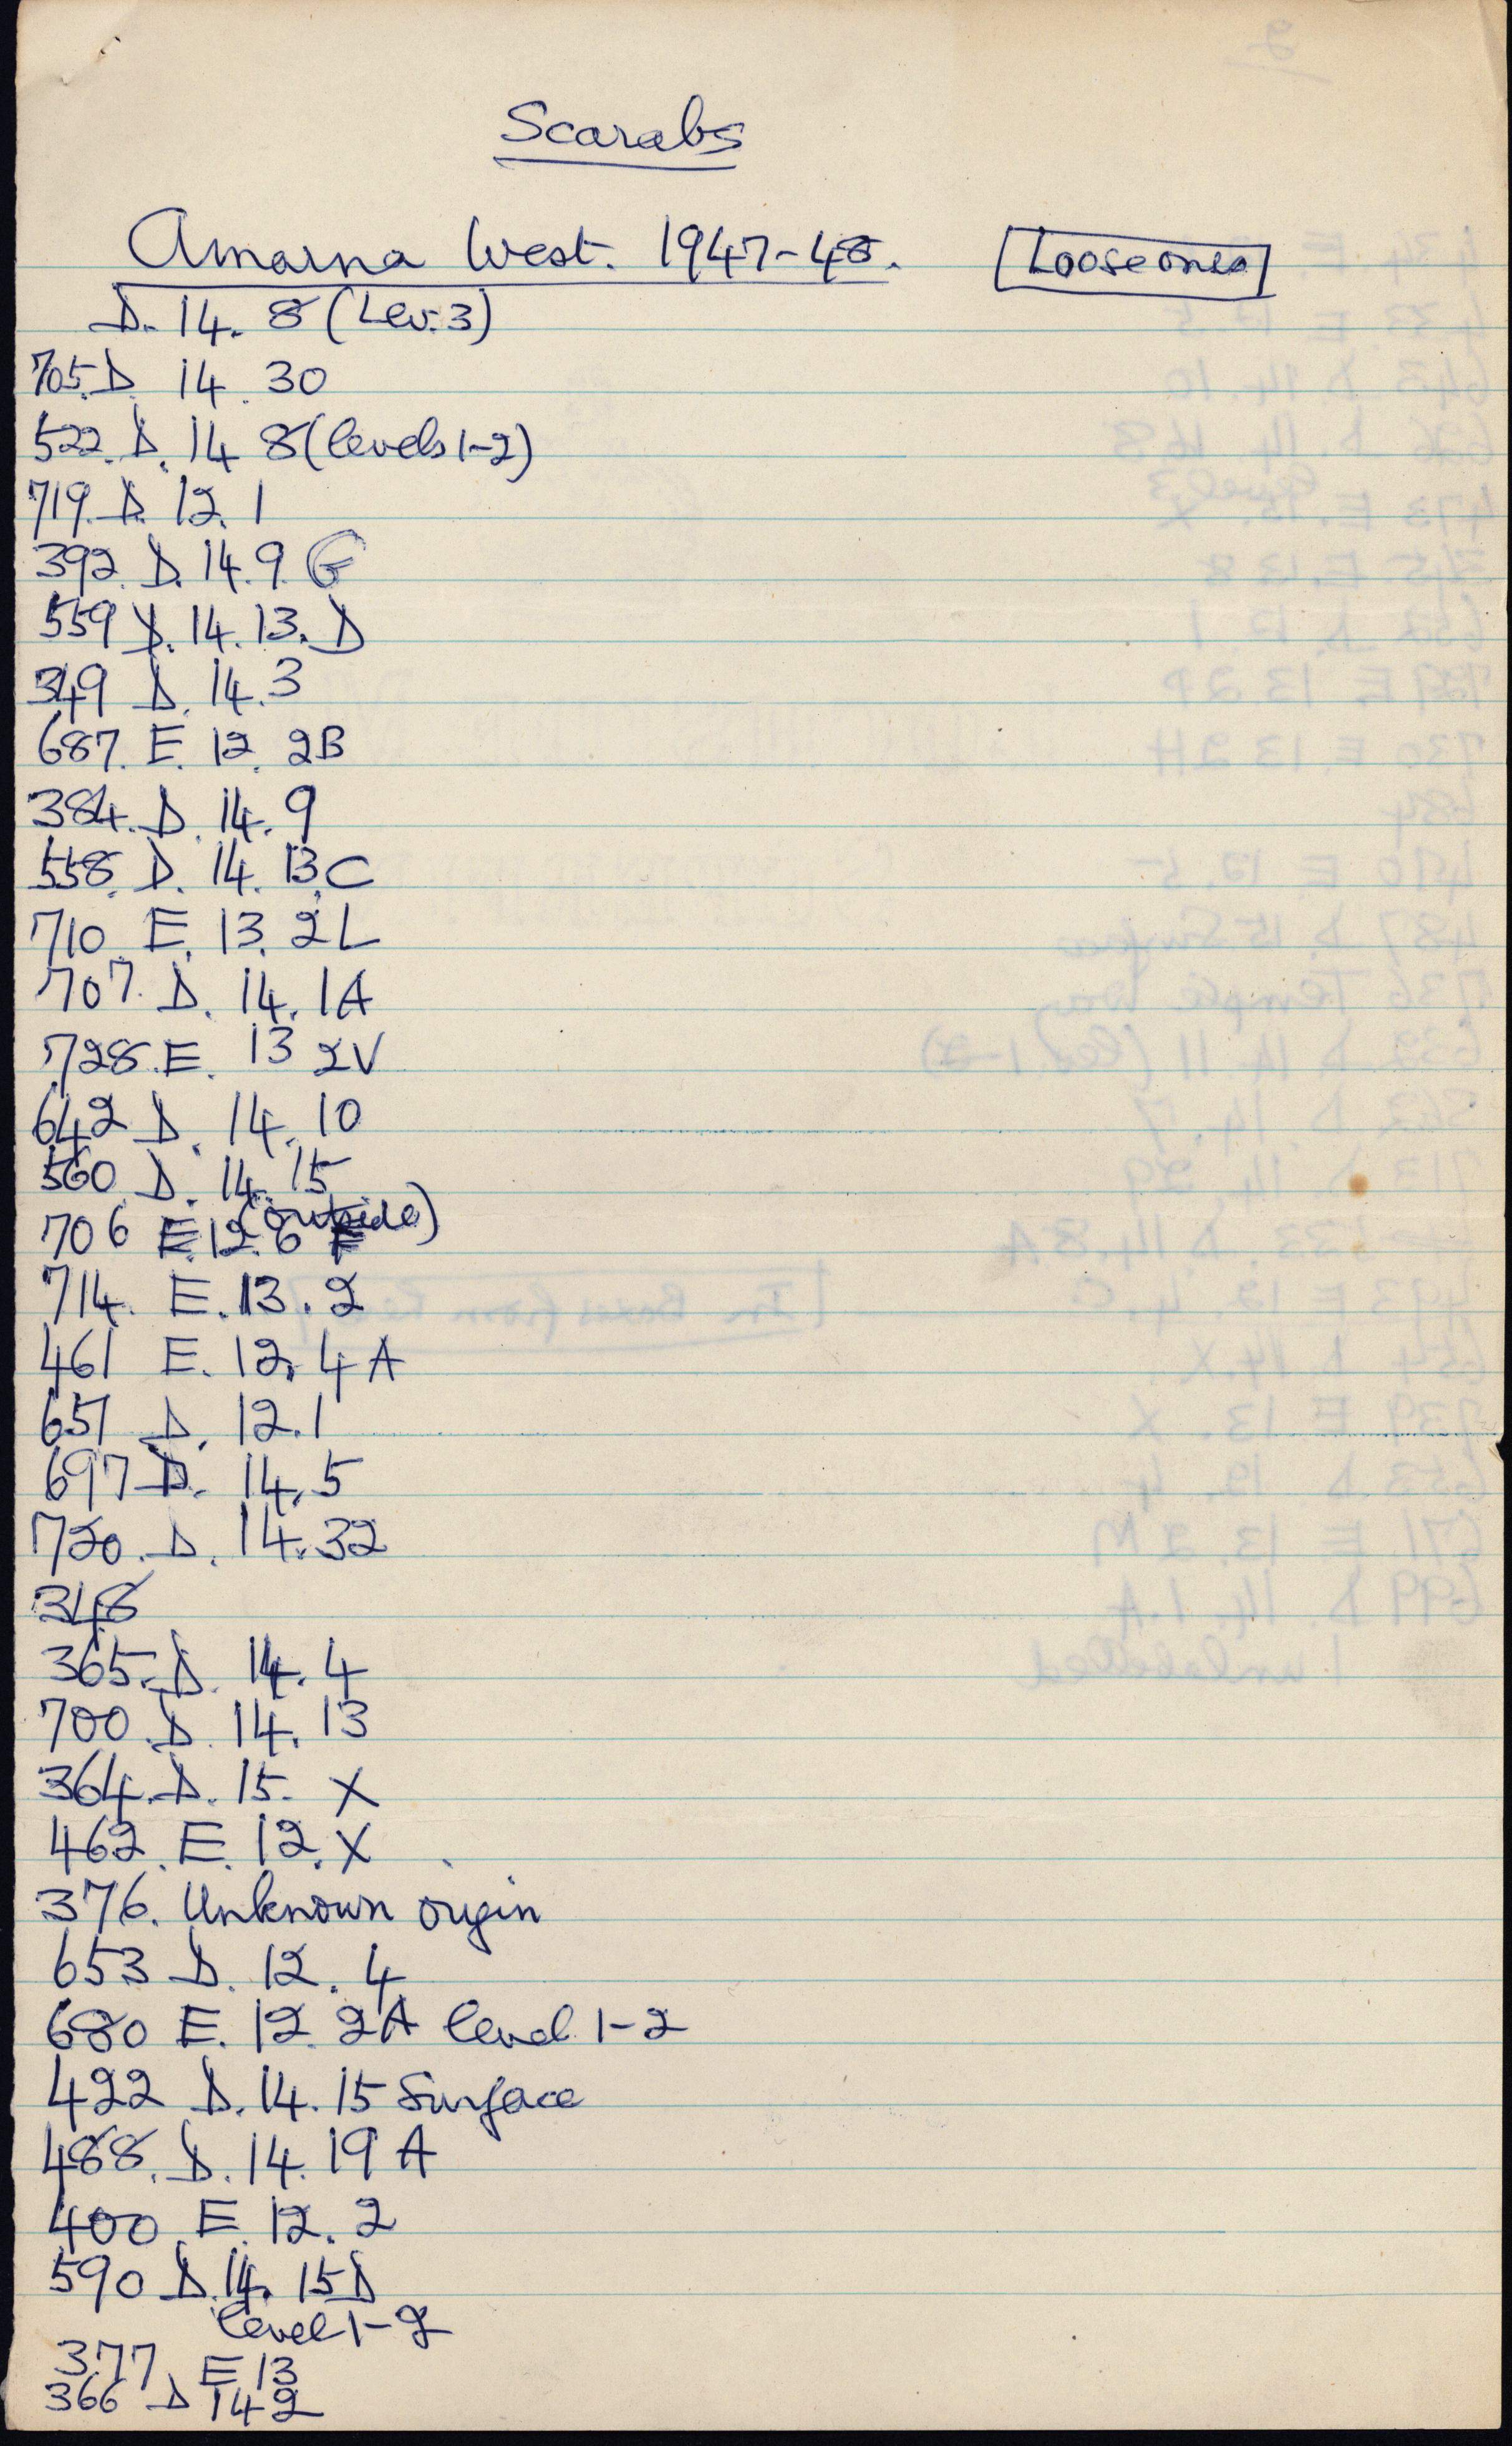 Scarabs
Amarna West. 1947-48. Loose ones
D. 14. 8 (Lev. 3)
705. D. 14. 30
522. D. 14 8 (levels 1-2)
719. D. 12. 1
392. D. 14. 9. G
559 D. 14. 13. D
349 D. 14. 3
687. E. 12. 2B
384. D. 14. 9
558. D. 14. 13. C
710 E. 13. 2L
707. D. 14. 1A
728. E. 13 2V
642 D. 14. 10
560 D. 14. 15
(outside)
706 E. 12. 6
714. E. 13. 2
461 E. 12. 4A
651 D. 12. 1
697 D. 14. 5
720. D. 14. 32
348
365. D. 14. 4
700. D. 14. 13
364. D. 15. X
462. E. 12. X
376. Unknown origin
653 D. 12. 4
680 E. 12. 2A level 1-2
422 D. 14. 15 Surface
488. D. 14. 19 A
400 E. 12. 2
590 D. 14. 15D
level 1-2
377 E 13
366 D 14 2